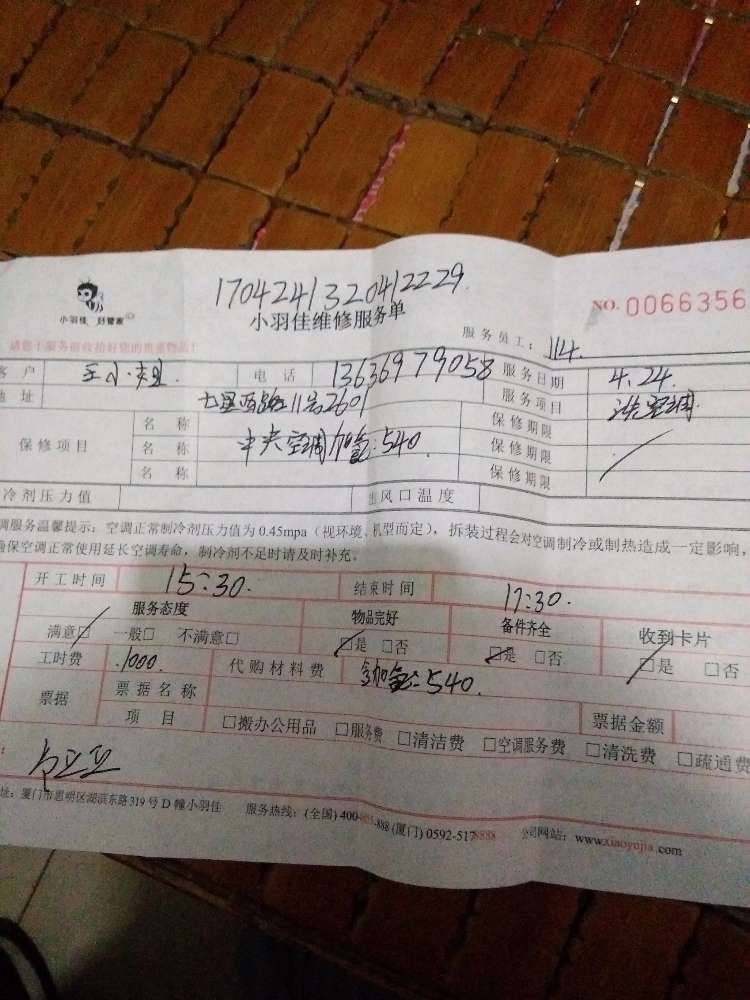 1704241320412229
小羽佳 好管家
小羽佳维修服务单
NO. 0066356
服务员工: 114.
请您于服务前收拾好您的贵重物品!
客户 电话 13636979058 服务日期 4.24.
地址 七星西路11号2601 服务项目 洗空调
保修项目 名称 保修期限
名称 中央空调加氟:540. 保修期限
名称 保修期限
冷剂压力值 出风口温度
调服务温馨提示:空调正常制冷剂压力值为0.45mpa(视环境、机型而定),拆装过程会对空调制冷或制热造成一定影响,
确保空调正常使用延长空调寿命,制冷剂不足时请及时补充。
开工时间 15:30. 结束时间 17:30.
服务态度 物品完好 备件齐全 收到卡片
满意□ 一般□ 不满意□ □是 □否 □是 □否 □是 □否
工时费 .1000. 代购材料费 加氟:540.
票据 票据名称 票据金额
项目 □搬办公用品 □服务费 □清洁费 □空调服务费 □清洗费 □疏通费
址:厦门市思明区湖滨东路319号D幢小羽佳 服务热线:(全国)400- -888 (厦门) 0592-5178888 公司网站:www.xiaoyujia.com